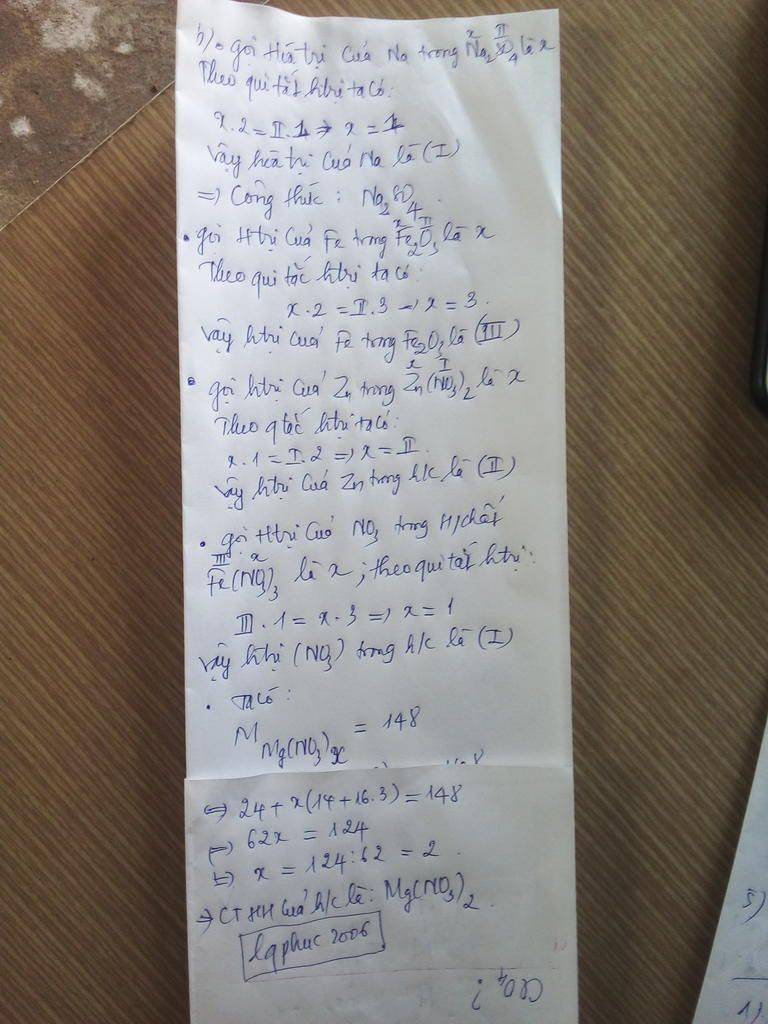 b). gọi Hóa trị Của Na trong Na₂SO₄ là x
x II
Theo qui tắc htrị ta có:
x.2 = II.1 ⇒ x = 1
Vậy hóa trị Của Na là (I)
⇒ Công thức : Na₂SO₄.
• gọi Htrị Của Fe trong Fe₂O₃ là x
x II
Theo qui tắc htrị ta có:
x.2 = II.3 → x = 3.
Vậy htrị của Fe trong Fe₂O₃ là (III)
• gọi htrị Của Zn trong Zn(NO₃)₂ là x
x I
Theo qtắc htrị ta có:
x.1 = I.2 ⇒ x = II.
Vậy htrị Của Zn trong h/c là (II)
• gọi Htrị Của NO₃ trong H/chất
III x
Fe(NO₃)₃ là x ; theo qui tắc htrị:
III.1 = x.3 ⇒ x = 1
Vậy htrị (NO₃) trong h/c là (I)
• Ta có :
M Mg(NO₃)x = 148
⇔ 24 + x(14+16.3) = 148
⇔ 62x = 124
⇔ x = 124:62 = 2.
⇒ CTHH Của h/c là: Mg(NO₃)₂.
lqphuc 2006
ClO₄ ?
5)
1)